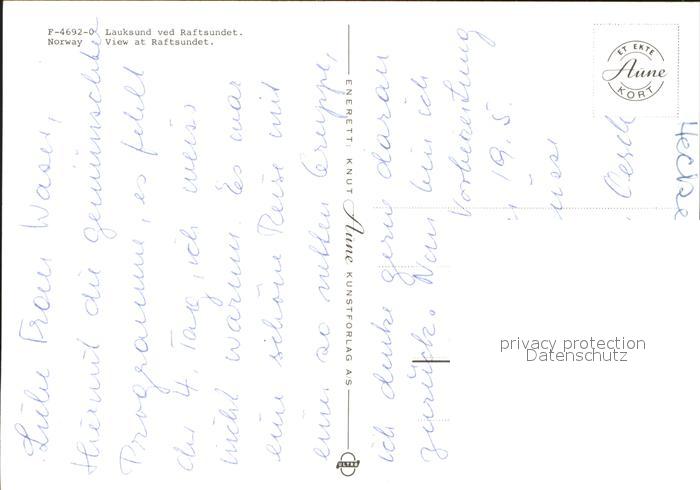 F-4692-0 Lauksund ved Raftsundet.
Norway View at Raftsundet.
ET EKTE
Aune
KORT
ENERETT: KNUT Aune KUNSTFORLAG A/S
ULTRA
Liebe Frau Waser,
Hiermit die gewünschten
Programme, es fehlt
der 4. Tag, ich weiss
nicht warum. Es war
eine schöne Reise mit
einer so netten Gruppe,
ich denke gern daran
zurück. Nun bin ich
Vorbereitung
19.5.
Oesch
privacy protection
Datenschutz